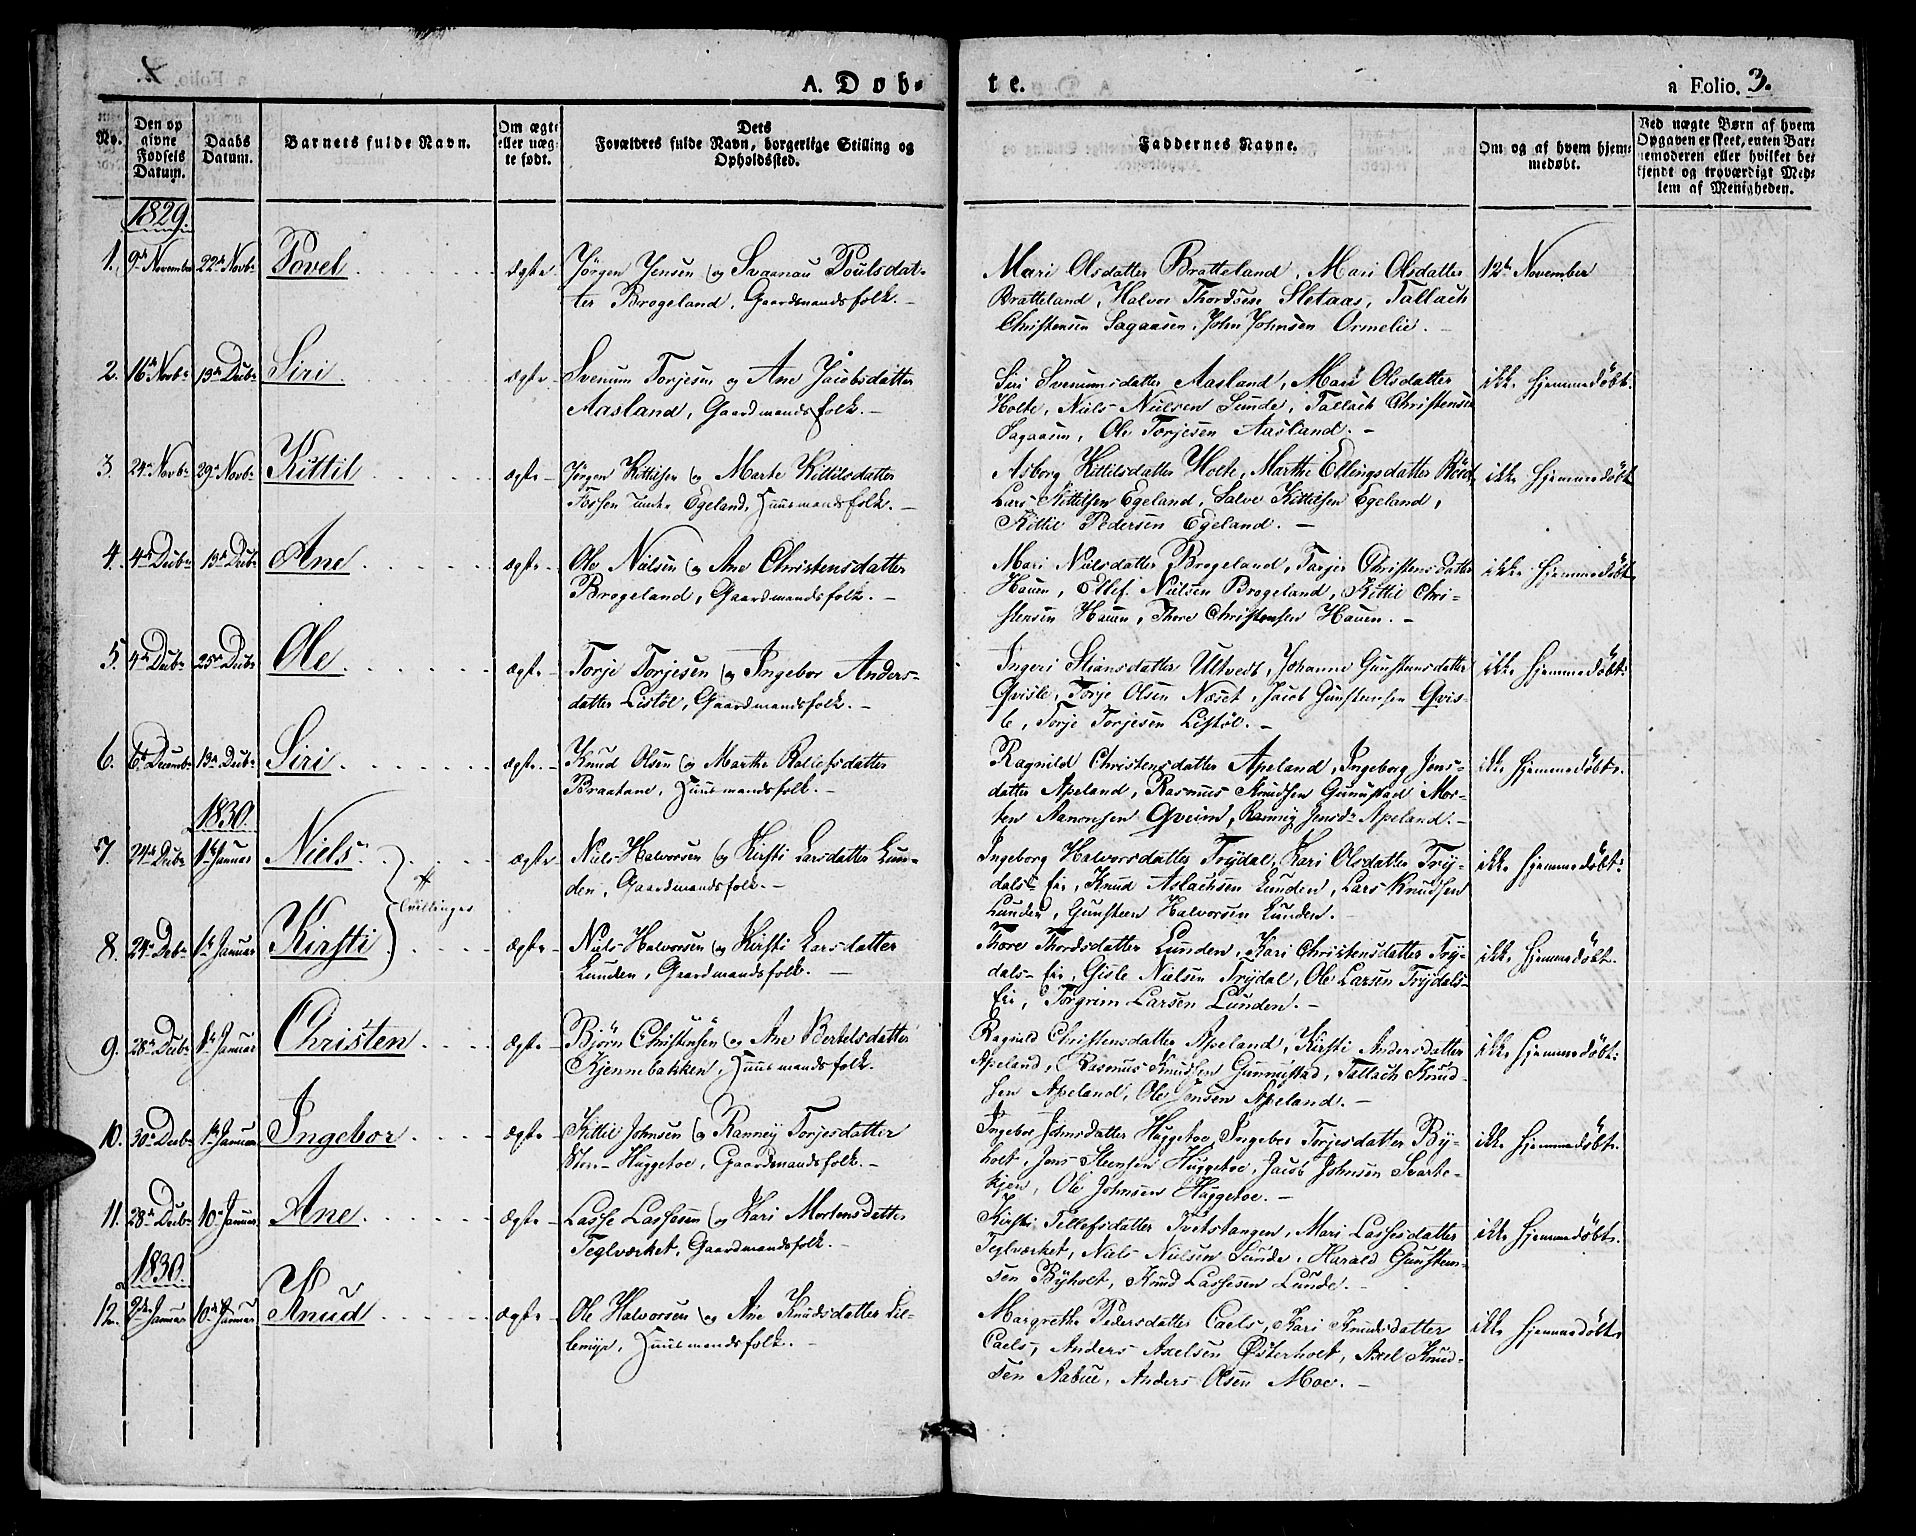 A. Døbte.
a Folio. 3.
No.
Den opgivne Fødsels Datum.
Daabs Datum.
Barnets fulde Navn.
Om ægte eller uægte født.
Dets Forældres fulde Navn, borgerlige Stilling og Opholdssted.
Faddernes Navne.
Om og af hvem hjemmedøbt.
Ved uægte Børn af hvem Opgaven er skeet, enten Barnemoderen eller hvilket bekjendt og troværdigt Medlem af Menigheden.
1829.
1. 9de November 22de Novbr Povel ægte Jörgen Jensen og Svanau Poulsdat-
ter Brogeland, Gaardmandsfolk.
Mari Olsdatter Bratteland, Mari Olsdatter
Bratteland, Halvor Thordsen Sletaas, Tallach
Christensen Sagaasen, John Johnsen Ormelie.
12te November
2. 16de Novbr 19de Decbr Siri ægte Svenum Torjesen og Ane Jacobsdatter
Aasland, Gaardmandsfolk.
Siri Svenumsdatter Aasland, Mari Olsdatter
Holte, Niels Nielsen Sunde, Tallach Christensen
Sagaasen, Ole Torjesen Aasland.
ikke hjemmedöbt.
3. 24de Novbr 29de Novbr Kittil ægte Jörgen Kittilsen og Marte Kittilsdatter
Fossen under Egeland, Huusmandsfolk.
Asborg Kittilsdatter Holte, Marthe Ellingsdatter Röed,
Lars Kittilsen Egeland, Salve Kittilsen Egeland,
Kittil Pedersen Egeland.
ikke hjemmedöbt
4. 4de Decbr 19de Decbr Ane ægte Ole Nielsen og Ane Christensdatter
Brogeland, Gaardmandsfolk.
Mari Nielsdatter Brogeland, Tarjer Christensdatter
Hauen, Ellef Nielsen Brogeland, Kittil Chri-
stensen Hauen, Thore Christensen Hauen.
ikke hjemmedöbt
5. 4de Decbr 25de Decbr Ole ægte Torje Torjesen og Ingebor Anders-
datter Listöl, Gaardmandsfolk.
Ingeri Stiansdatter Ultvedt, Johanne Gunstensdatter
Qvisle, Torje Olsen Næset, Jacob Gunstensen Qvis-
le, Torje Torjesen Listöl.
ikke hjemmedöbt.
6. 6te Decembr 19de Decbr Siri ægte Knud Olsen og Marthe Roliefsdatter
Braatane, Huusmandsfolk.
Ragnild Christensdatter Apeland, Ingeborg Jens-
datter Apeland, Rasmus Knudsen Gunnestad Mor-
ten Aanonsen Qveim, Ranneÿ Jensdr Apeland.
ikke hjemmedöbt.
1830.
7. 24de Decbr 1te Januar Niels ægte Niels Halvorsen og Kirsti Larsdatter Lun-
den, Gaardmandsfolk.
Tvillinger
Ingeborg Halvorsdatter Trÿdal, Kari Olsdatter Trÿ-
dals-Eie, Knud Aslachsen Lunden, Lars Knudsen
Lunden, Gunsteen Halvorsen Lunden.
ikke hjemmedöbt.
8. 24de Decbr 1te Januar Kirsti ægte Niels Halvorsen og Kirsti Larsdatter
Lunden, Gaardmandsfolk.
Thore Thordsdatter Lunden, Kari Christensdatter Trÿ-
dals-Eie, Gisle Nielsen Trÿdal, Ole Larsen Trÿdals-
Eie, Torgrim Larsen Lunden.
ikke hjemmedöbt.
9. 28de Decbr 1te Januar Christen ægte Björn Christensen og Ane Bertelsdatter
Kjennebakken, Huusmandsfolk.
Ragnild Christensdatter Apeland, Kirsti Andersdatter
Apeland, Rasmus Knudsen Gunnestad, Tallach Knud-
sen Apeland, Ole Jensen Apeland.
ikke hjemmedöbt.
10. 30te Decbr 1te Januar Ingebor ægte Kittil Johnsen og Ranneÿ Torjesdatter
Sten-Huggetoe, Gaardmandsfolk.
Ingebor Johnsdatter Huggetoe, Ingebor Torjesdatter Bÿ-
holt, Jens Steensen Huggetoe, Jacob Johnsen Svarte-
kjen, Ole Johnsen Huggetoe.
ikke hjemmedöbt.
11. 28de Decbr 10de Januar Ane ægte Lasse Lassesen og Kari Mortensdatter
Teglværket, Gaardmandsfolk.
Kirsti Tellefsdatter Tvetstangen, Mari Lassesdatter
Teglværket, Niels Nielsen Sunde, Harald Gunsteen-
sen Bÿholt, Knud Lassesen Lunde.
ikke hjemmedöbt.
1830.
12. 2den Januar 10de Januar Knud ægte Ole Halvorsen og Ane Knudsdatter Lil-
lemÿr, Huusmandsfolk.
Margrethe Pedersdatter Caels, Kari Knudsdatter
Caels, Anders Axelsen Österholt, Axel Knud-
sen Aabue, Anders Olsen Moe.
ikke hjemmedöbt